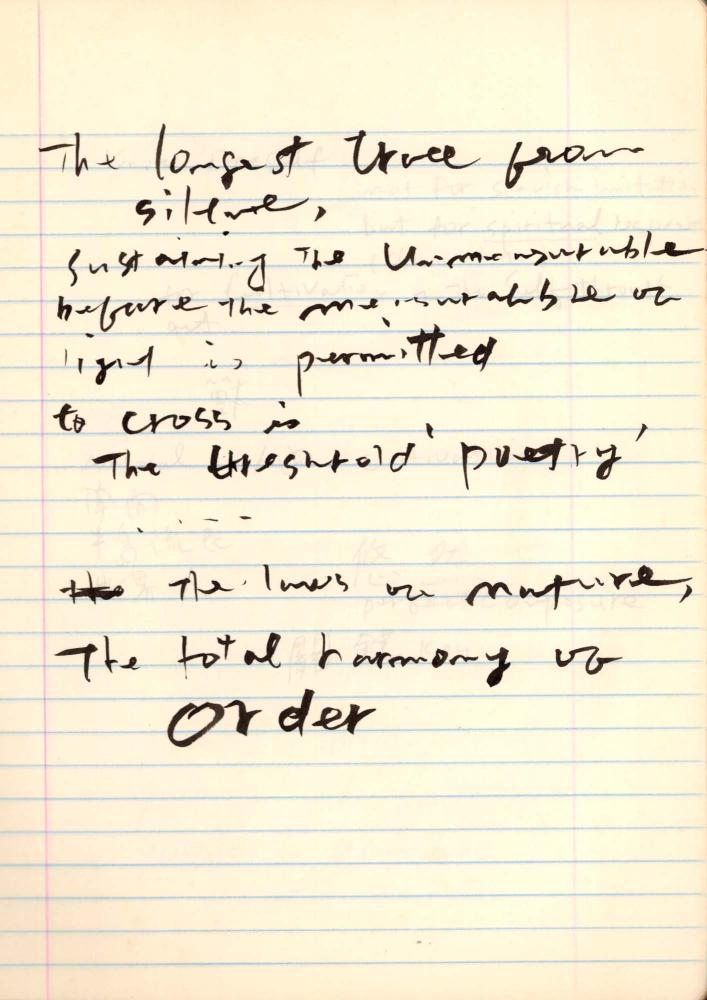 The longest tree from
silence,
sustaining the Unmeasurable
before the measurable of
light is permitted
to cross is
The threshold 'poetry'
. . - -
The laws of nature,
The total harmony of
Order